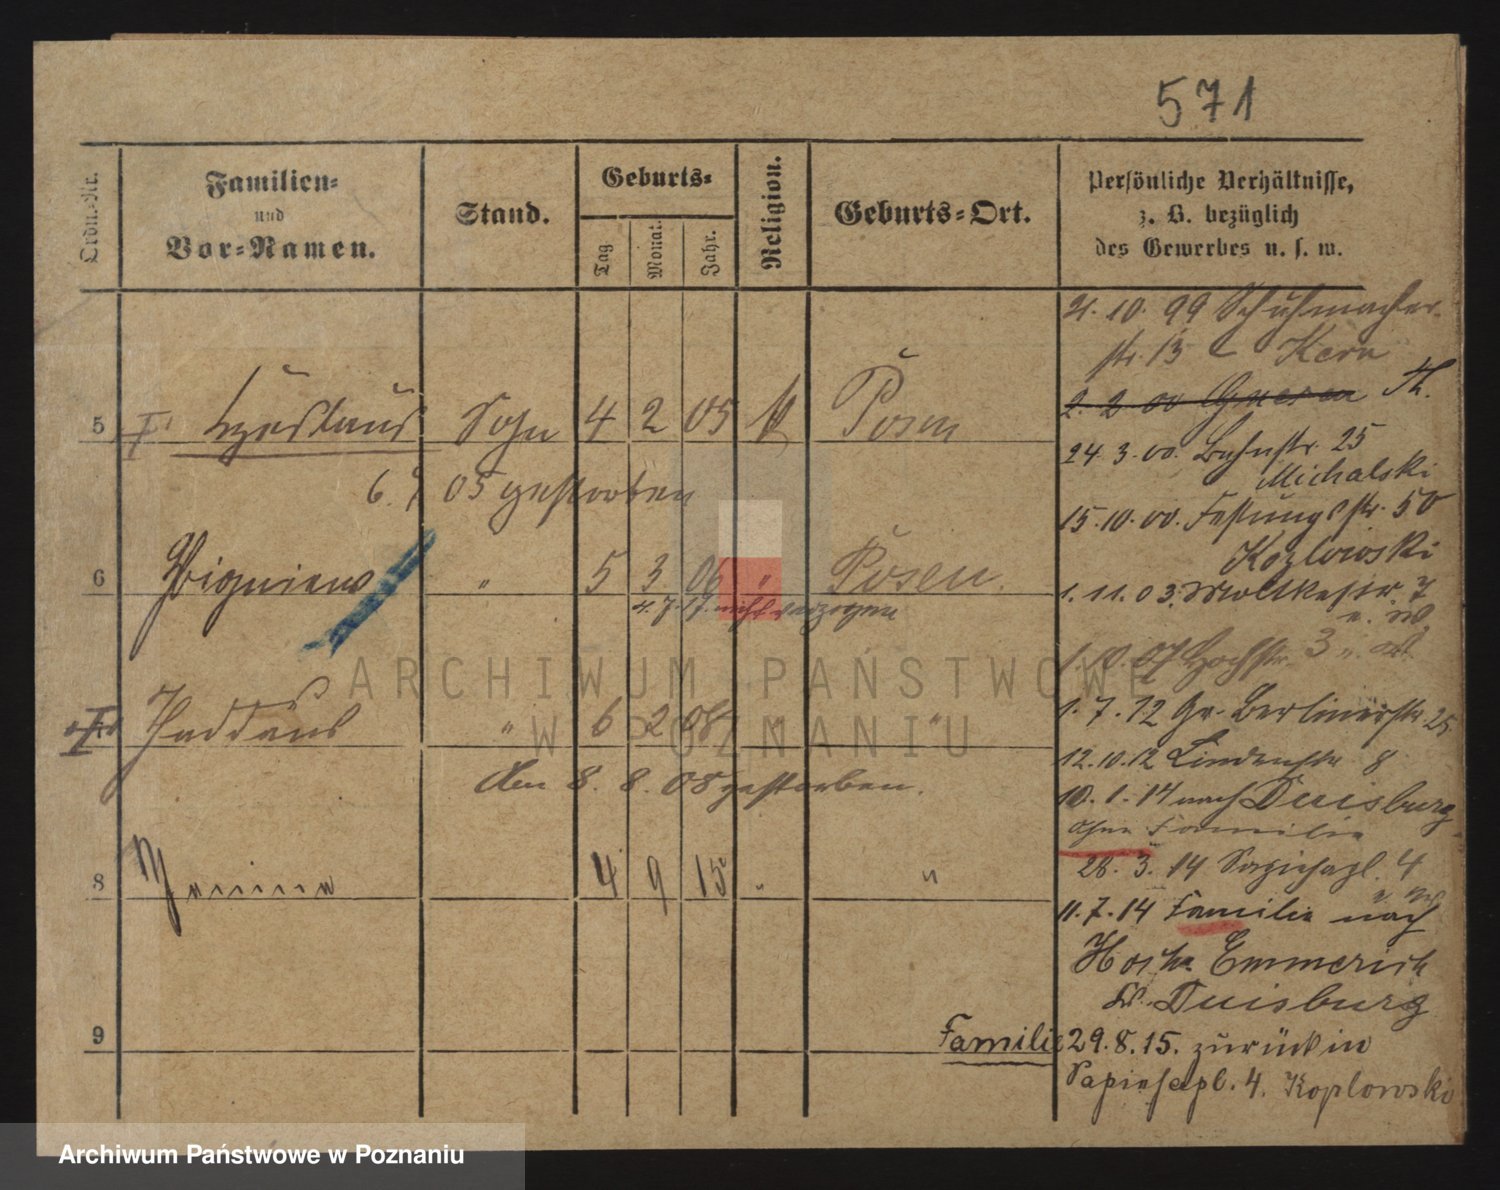 571
Ordn.-Nr.
Familien-
und
Vor-Namen.
Stand.
Geburts-
Tag
Monat.
Jahr.
Religion.
Geburts-Ort.
Persönliche Verhältnisse,
z. B. bezüglich
des Gewerbes u. s. w.
5 Sohn 4 2 05 Posen
05 gestorben
6 Zbigniew " 5 3 06 " Posen.
4.7.17. nicht verzogen
Thaddäus " 6 2 08 " "
den 8. 8. 08 gestorben.
8 4 9 15 " "
9
21. 10. 99 Schuhmacher-
str. 13 Kern
2. 2. 00 Gnesen
24. 3. 00. Bahnstr. 25
Michalski
15. 10. 00. Festungsstr. 50
Kozlowski
1. 11. 03. Moltkestr. 7
1. 10. 07 Hochstr. 3
1. 7. 12 Gr. Berlinerstr. 25
12. 10. 12 Lindenstr. 8
10. 1. 14 nach Duisburg
ohne Familie
28. 3. 14 Sapiehapl. 4
11. 7. 14 Familie nach
Emmerich
Duisburg
Familie 29. 8. 15. zurück in
Sapiehapl. 4. Koplowski
ARCHIWUM PAŃSTWOWE
W POZNANIU
Archiwum Państwowe w Poznaniu